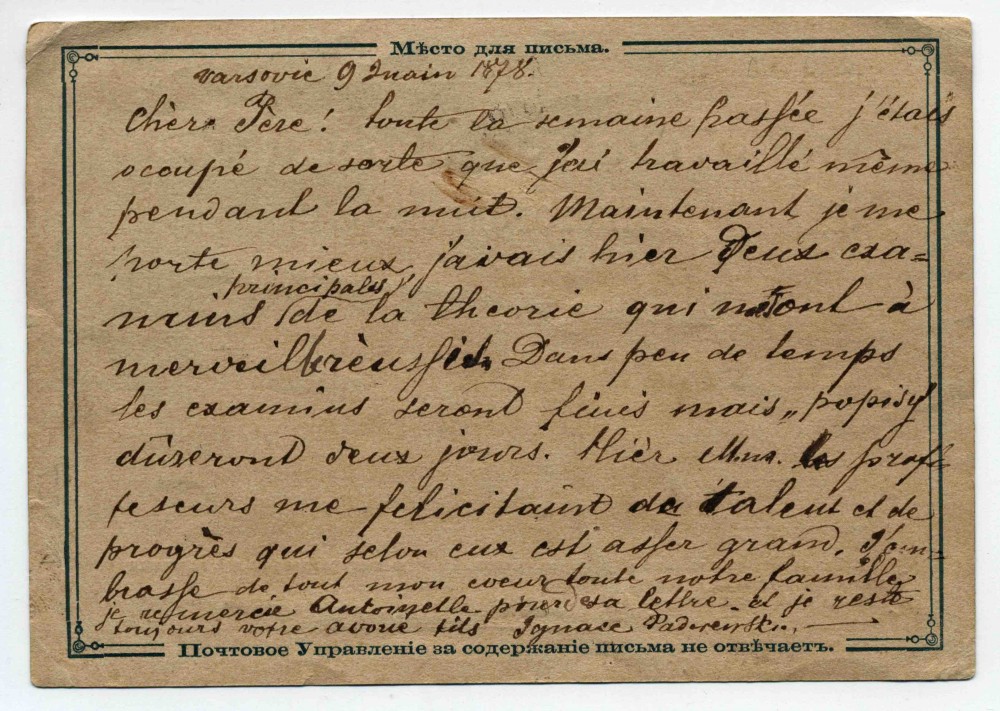 Мѣсто для письма.
Varsovie 9 Juain 1878.
Chèr Père! toute la semaine passée j'étais
occupé de sorte que j'ai travaillé même
pendant la nuit. Maintenant je me
porte mieux, j'avais hier deux exa=
principales
mins de la théorie qui m'ont à
merveil réussit. Dans peu de temps
les examins seront finis mais „popisy
dûreront deux jours. Hièr M.m. les prof-
feseurs me felicitaint de talent et de
progrès qui selon eux est asser grand. J'em=
brasse de tout mon coeur toute notre famille
je remercie Antoinette pour sa lettre et je reste
toujours votre avoué fils Ignace Paderewski.
Почтовое Управленіе за содержаніе письма не отвѣчаетъ.